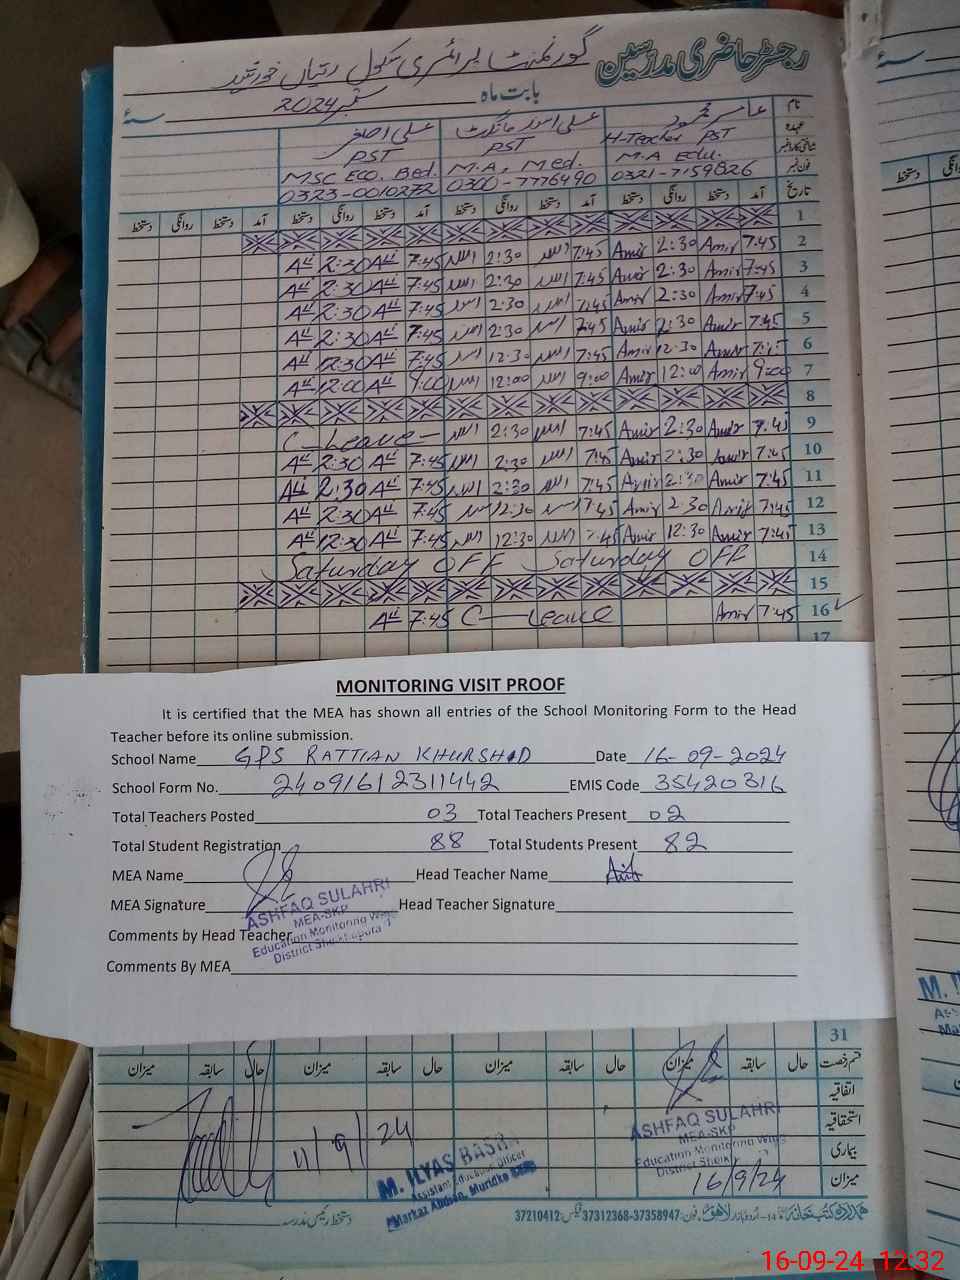 رجسٹر حاضری مدرسین
گورنمنٹ پرائمری سکول رتیاں خورشید
بابت ماہ ستمبر 2024 سنہ
نام
عہدہ
شناختی کارڈ نمبر
فون نمبر
عامر محمود
H-Teacher PST
M.A Edu.
0321-7159826
علی اسد
PST
M.A, Med.
0300-7776490
علی اصغر
PST
MSC ECO. Bed.
0323-0010272
تاریخ آمد دستخط روانگی دستخط آمد دستخط روانگی دستخط آمد دستخط روانگی دستخط آمد دستخط روانگی دستخط
1
2 7:45 Amir 2:30 Amir 7:45 اسد 2:30 اسد 7:45 Ali 2:30 Ali
3 7:45 Amir 2:30 Amir 7:45 اسد 2:30 اسد 7:45 Ali 2:30 Ali
4 7:45 Amir 2:30 Amir 7:45 اسد 2:30 اسد 7:45 Ali 2:30 Ali
5 7:45 Amir 2:30 Amir 7:45 اسد 2:30 اسد 7:45 Ali 2:30 Ali
6 7:45 Amir 12:30 Amir 7:45 اسد 12:30 اسد 7:45 Ali 12:30 Ali
7 9:00 Amir 12:00 Amir 9:00 اسد 12:00 اسد 9:00 Ali 12:00 Ali
8
9 7:45 Amir 2:30 Amir 7:45 اسد 2:30 اسد C-Leave-
10 7:45 Amir 2:30 Amir 7:45 اسد 2:30 اسد 7:45 Ali 2:30 Ali
11 7:45 Amir 2:30 Amir 7:45 اسد 2:30 اسد 7:45 Ali 2:30 Ali
12 7:45 Amir 2:30 Amir 7:45 اسد 2:30 اسد 7:45 Ali 2:30 Ali
13 7:45 Amir 12:30 Amir 7:45 اسد 12:30 اسد 7:45 Ali 12:30 Ali
14 Saturday OFF Saturday OFF
15
16 7:45 Amir C-Leave 7:45 Ali
17
MONITORING VISIT PROOF
It is certified that the MEA has shown all entries of the School Monitoring Form to the Head
Teacher before its online submission.
School Name GPS RATTIAN KHURSHID Date 16-09-2024
School Form No. 24091612311442 EMIS Code 35420316
Total Teachers Posted 03 Total Teachers Present 02
Total Student Registration 88 Total Students Present 82
MEA Name Head Teacher Name Amir
MEA Signature Head Teacher Signature
ASHFAQ SULAHRI
MEA-SKP
Education Monitoring Wing
District Sheikhupura
Comments by Head Teacher
Comments By MEA
31
قسم رخصت حال سابقہ میزان حال سابقہ میزان حال سابقہ میزان حال سابقہ میزان
اتفاقیہ
استحقاقیہ
بیماری
میزان
11/9/24
M. ILYAS BASRA
Assistant Education Officer
Markaz Abdian, Muridke
ASHFAQ SULAHRI
MEA-SKP
Education Monitoring Wing
District Sheik
16/9/24
دستخط رئیس مدرسہ
ہمدرد کتب خانہ اردو بازار لاہور فون: 37358947-37312368 فیکس: 37210412
16-09-24 12:32